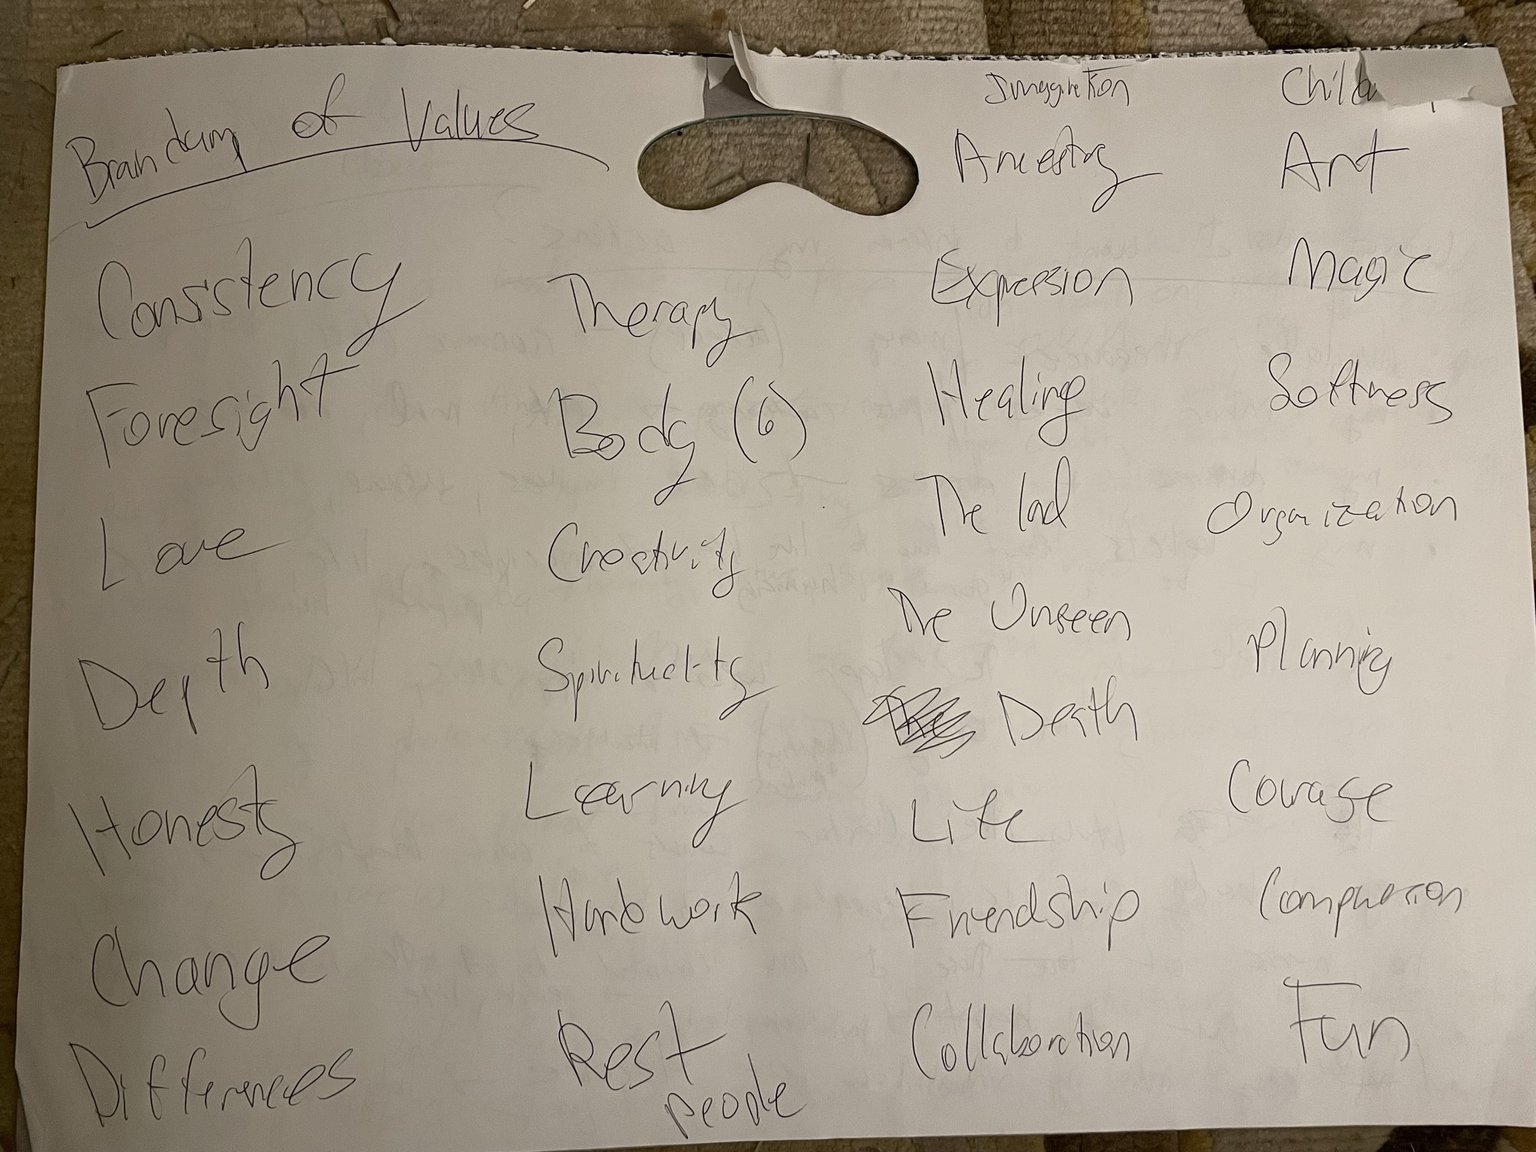 Braindump of Values
Consistency
Foresight
Love
Depth
Honesty
Change
Differences
Therapy
Body (6)
Creativity
Spirituality
Learning
Hard work
Rest
people
Imagination
Ancestry
Expression
Healing
The land
The Unseen
Death
Life
Friendship
Collaboration
Art
Magic
Softness
Organization
Planning
Courage
Compassion
Fun